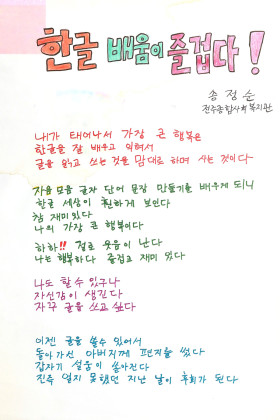 한글 배움이 즐겁다!
송정순
전주종합사회복지관
내가 태어나서 가장 큰 행복은
한글을 잘 배우고 익혀서
글을 읽고 쓰는 것을 맘대로 하며 사는 것이다
자음 모음 글자 단어 문장 만들기를 배우게 되니
한글 세상이 훤하게 보인다
참 재미있다
나의 가장 큰 행복이다
하하!! 절로 웃음이 난다
나는 행복하다 즐겁고 재미 있다
나도 할 수 있구나
자신감이 생긴다
자꾸 글을 쓰고 싶다
이젠 글을 쓸수 있어서
돌아가신 아버지께 편지를 썼다
갑자기 설움이 쏟아진다
진즉 알지 못했던 지난 날이 후회가 된다